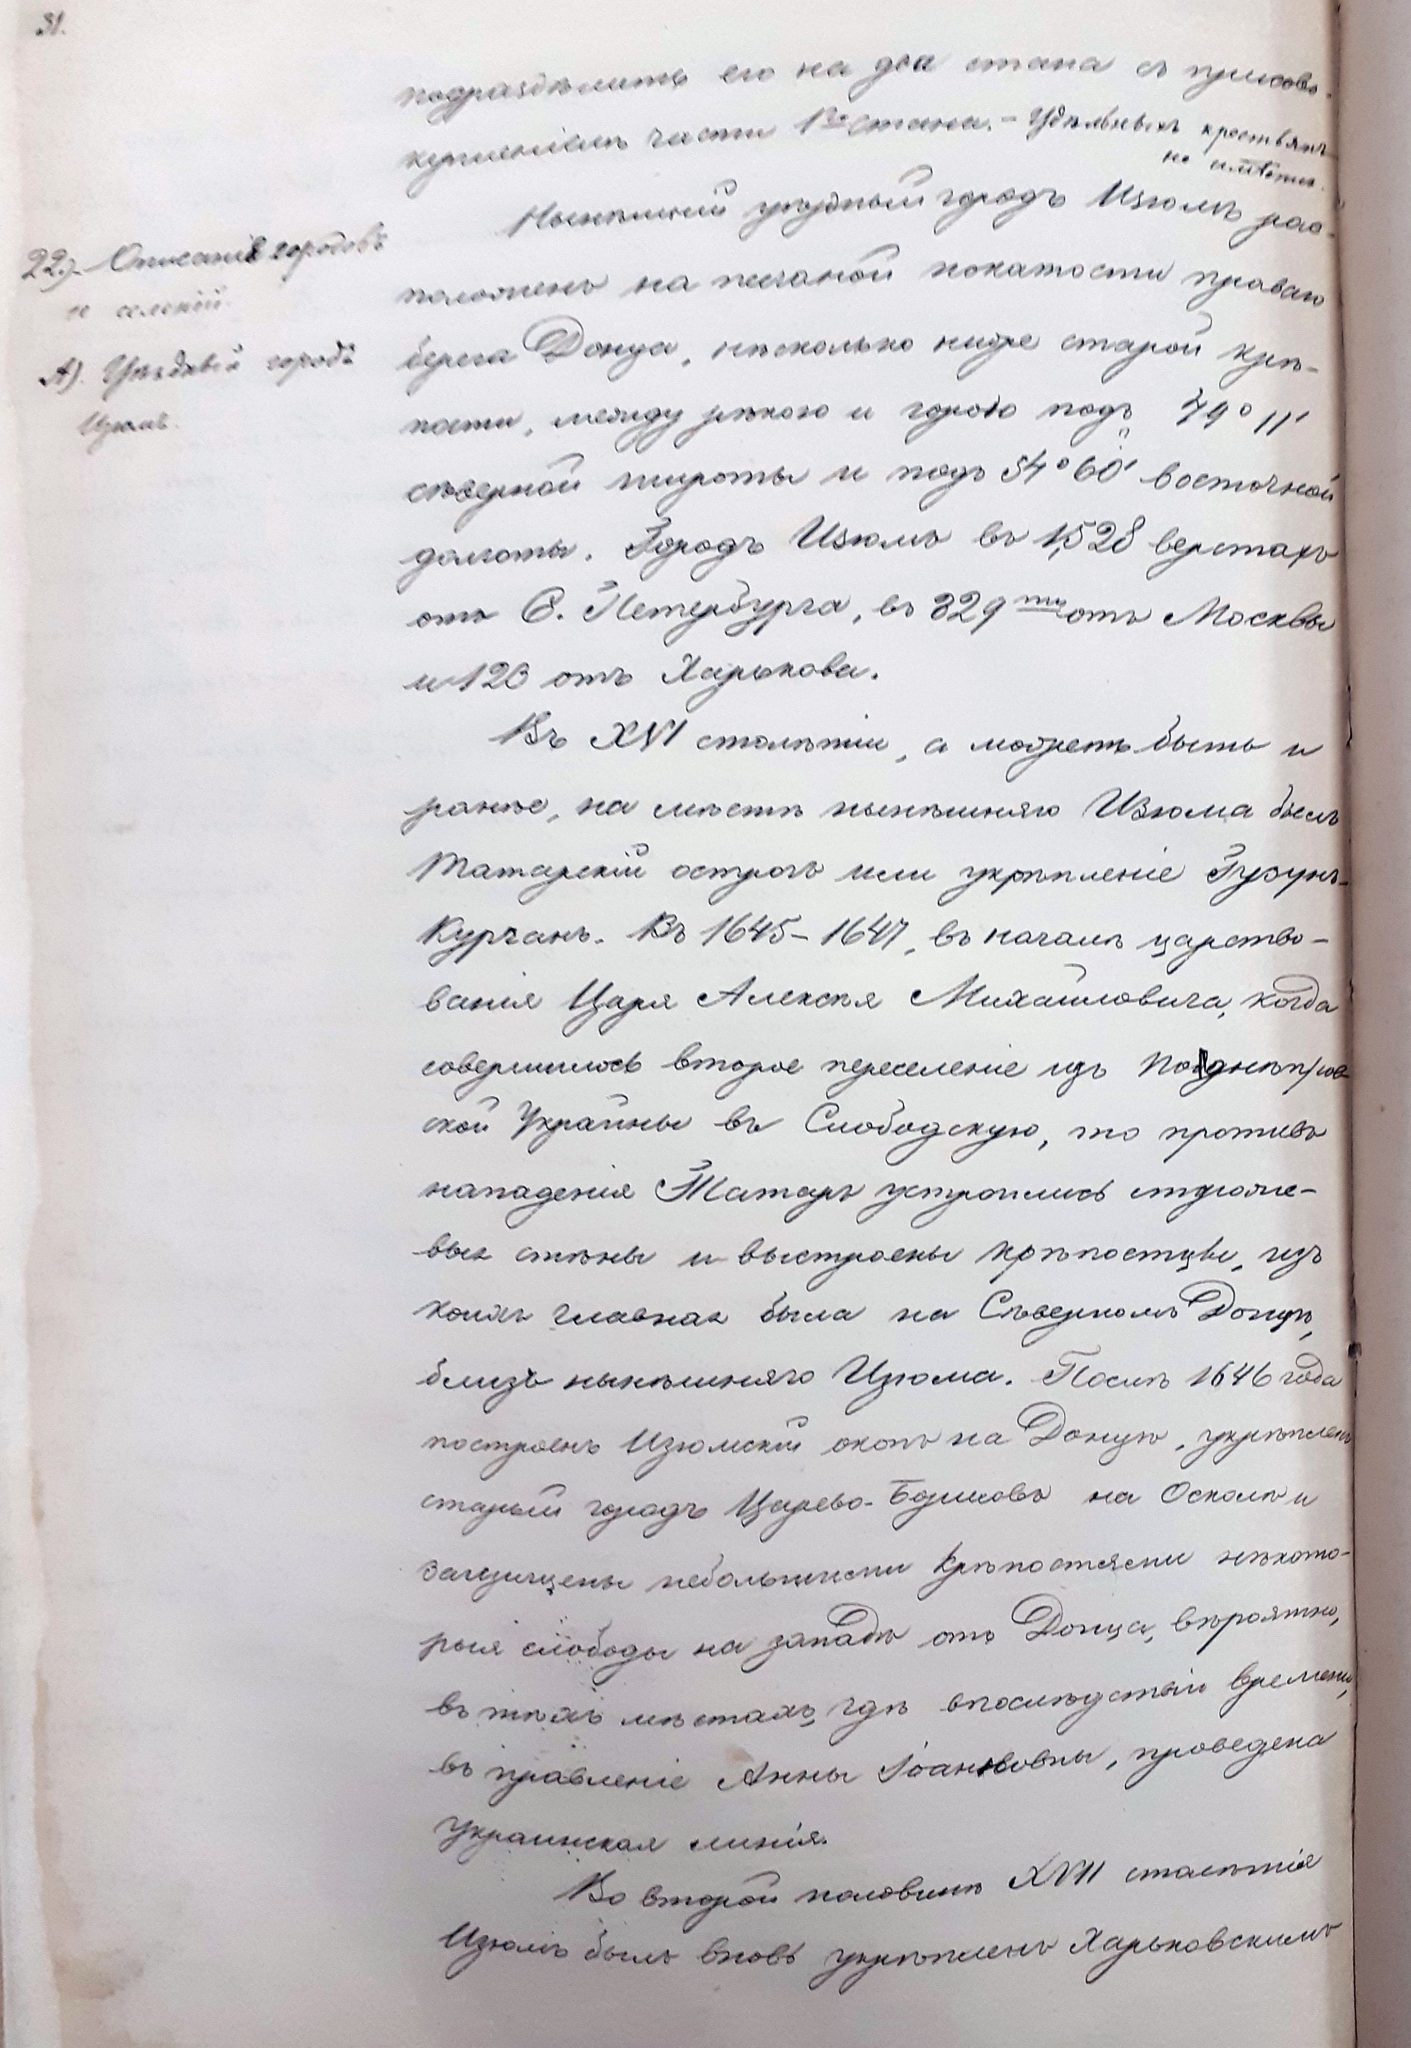 31.
подраздѣлить его на два стана съ присово-
купленіемъ части 1го стана. – Удѣльныхъ крестьянъ
не имѣется.
22.) Описаніе городовъ
и селеній.
А). Уѣздный городъ
Изюмъ.
Нынѣшній уѣздный городъ Изюмъ рас-
положенъ на песчаной покатости праваго
берега Донца, нѣсколько ниже старой крѣ-
пости, между рѣкою и горою подъ 79° 11'
сѣверной широты и подъ 54° 60' восточной
долготы. Городъ Изюмъ въ 1,528 верстахъ
отъ С. Петербурга, въ 829ти отъ Москвы
и 123 отъ Харькова.
Въ XVI столѣтіи, а можетъ быть и
ранѣе, на мѣстѣ нынѣшняго Изюма былъ
Татарскій острогъ или укрѣпленіе Гузунъ-
Курганъ. Въ 1645–1647, въ началѣ царство-
ванія Царя Алексѣя Михайловича, когда
совершилось второе переселеніе изъ Поднѣпров-
ской Украйны въ Слободскую, то противъ
нападенія Татаръ устроились сторже-
выя стѣны и выстроены крѣпостцы, изъ
коихъ главная была на Сѣверномъ Донцѣ,
близъ нынѣшняго Изюма. Послѣ 1646 года
построенъ Изюмскій окопъ на Донцѣ, укрѣпленъ
старый городъ Царево-Борисовъ на Осколѣ и
защищены небольшими крѣпостями нѣкото-
рыя слободы на западѣ отъ Донца, вѣроятно,
въ тѣхъ мѣстахъ, гдѣ впослѣдствіи времени,
въ правленіе Анны Іоанновны, проведена
украинская линія.
Во второй половинѣ XVII столѣтія
Изюмъ былъ вновь укрѣпленъ Харьковскимъ